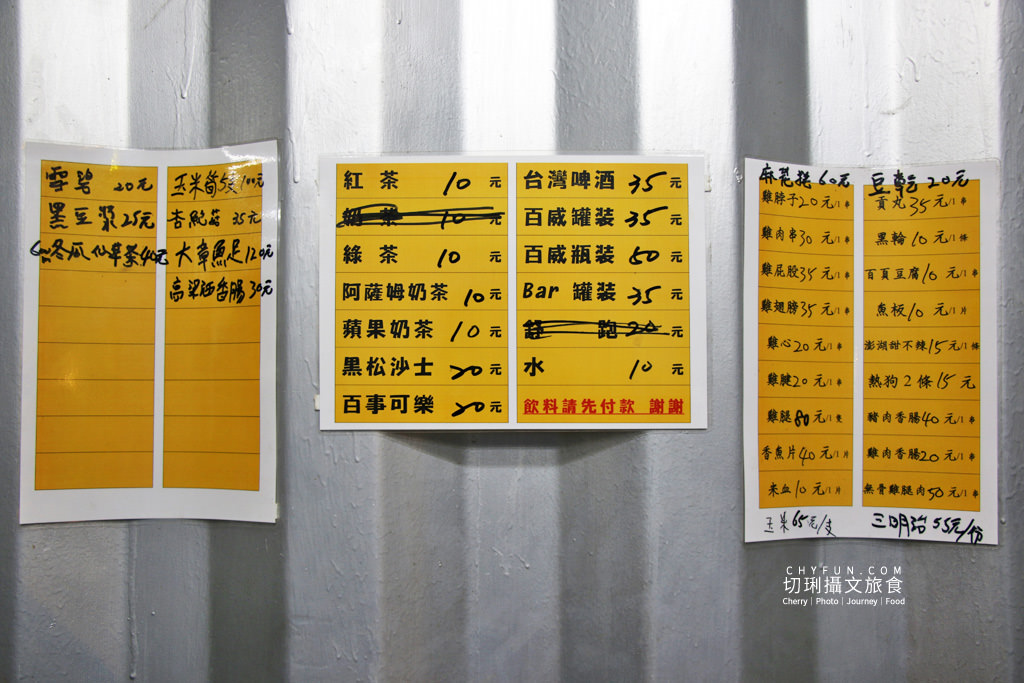 雪碧 20元
黑豆漿 25元
冬瓜 仙草茶40元
玉米筍5支100元
杏鮑菇 35元
大章魚足120元
高粱酒香腸 30元
紅茶 10 元
奶茶 10 元
綠茶 10 元
阿薩姆奶茶 10 元
蘋果奶茶 10 元
黑松沙士 20 元
百事可樂 20 元
台灣啤酒 35 元
百威罐裝 35 元
百威瓶裝 50 元
Bar 罐裝 35 元
跑 20 元
水 10 元
飲料請先付款 謝謝
60元
雞脖子20元/1串
雞肉串30元/1串
雞屁股35元/1串
雞翅膀35元/1串
雞心20元/1串
雞腱20元/1串
雞腿80元/1隻
香魚片40元/1片
米血10元/1片
玉米65元/支
豆乾20元
貢丸35元/1串
黑輪10元/1條
百頁豆腐10元/1串
魚板10元/1片
澎湖甜不辣15元/1條
熱狗2條15元
豬肉香腸40元/1串
雞肉香腸20元/1串
無骨雞腿肉50元/1串
三明治55元/份
CHYFUN.COM
切琍攝文旅食
Cherry | Photo | Journey | Food